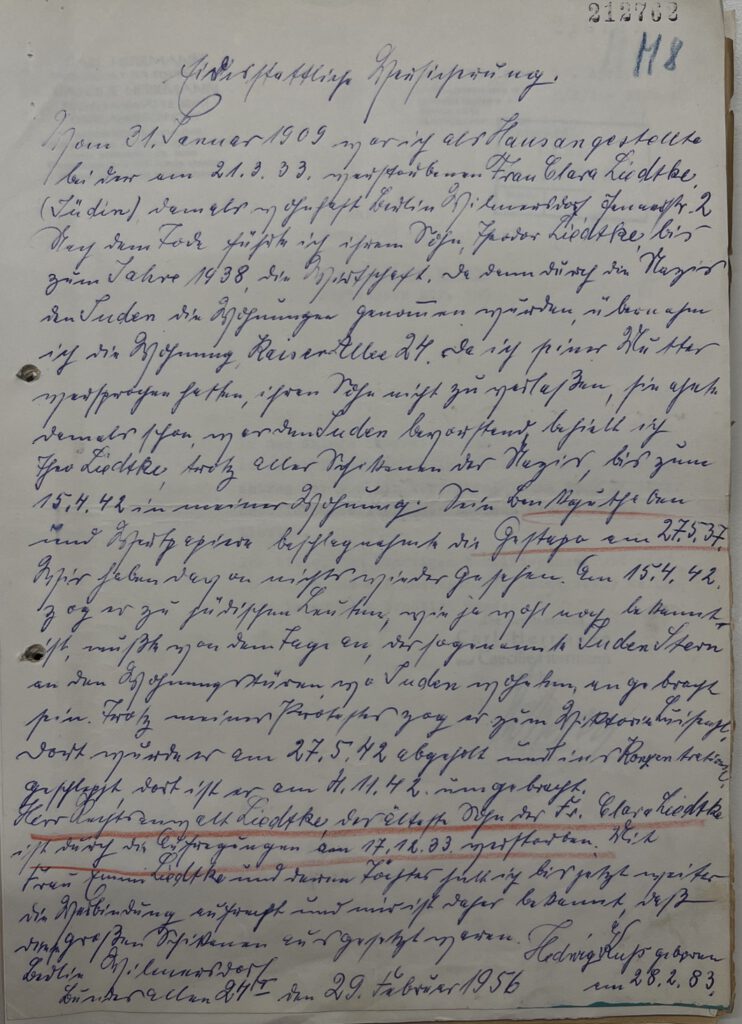 212762
118
Eidesstattliche Versicherung.
Vom 31. Januar 1909 war ich als Hausangestellte
bei der am 21.3.33. verstorbenen Frau Clara Liedtke,
(Jüdin), damals wohnhaft Berlin Wilmersdorf Jenaerstr. 2
Nach dem Tode führte ich ihrem Sohn, Theodor Liedtke, bis
zum Jahre 1938, die Wirtschaft. Da dann durch die Nazis
den Juden die Wohnungen genommen wurden, übernahm
ich die Wohnung, Kaiser Allee 24. Da ich seiner Mutter
versprochen hatte, ihren Sohn nicht zu verlaßen, sie ahnte
damals schon, was den Juden bevorstand, behielt ich
Theo Liedtke, trotz aller Schikanen der Nazis, bis zum
15.4.42 in meiner Wohnung. Sein Bankguthaben
und Wertpapiere beschlagnahmte die Gestapo am 27.5.37.
Wir haben davon nichts wieder gesehen. Am 15.4.42.
zog er zu jüdischen Leuten, wie ja wohl noch bekannt
ist, mußte von dem Tage an, der sogenannte Juden Stern
an den Wohnungstüren, wo Juden wohnten, angebracht
sein. Trotz meiner Protestes zog er zum Viktoria Luisepl.
Dort wurde er am 27.5.42 abgeholt und ins Konzentrationsl.
geschleppt, dort ist er am 11.42. umgebracht.
Herr Rechtsanwalt Liedtke, der älteste Sohn der Fr. Clara Liedtke
ist durch die Aufregungen am 17.12.33. verstorben. Mit
Frau Emmi Liedtke und deren Töchter hielt ich bis jetzt weiter
die Verbindung aufrecht und mir ist daher bekannt, daß
großen Schikanen ausgesetzt waren. Hedwig geboren
Berlin Wilmersdorf am 28.2.83.
Bundesallee 24 den 29. Februar 1956